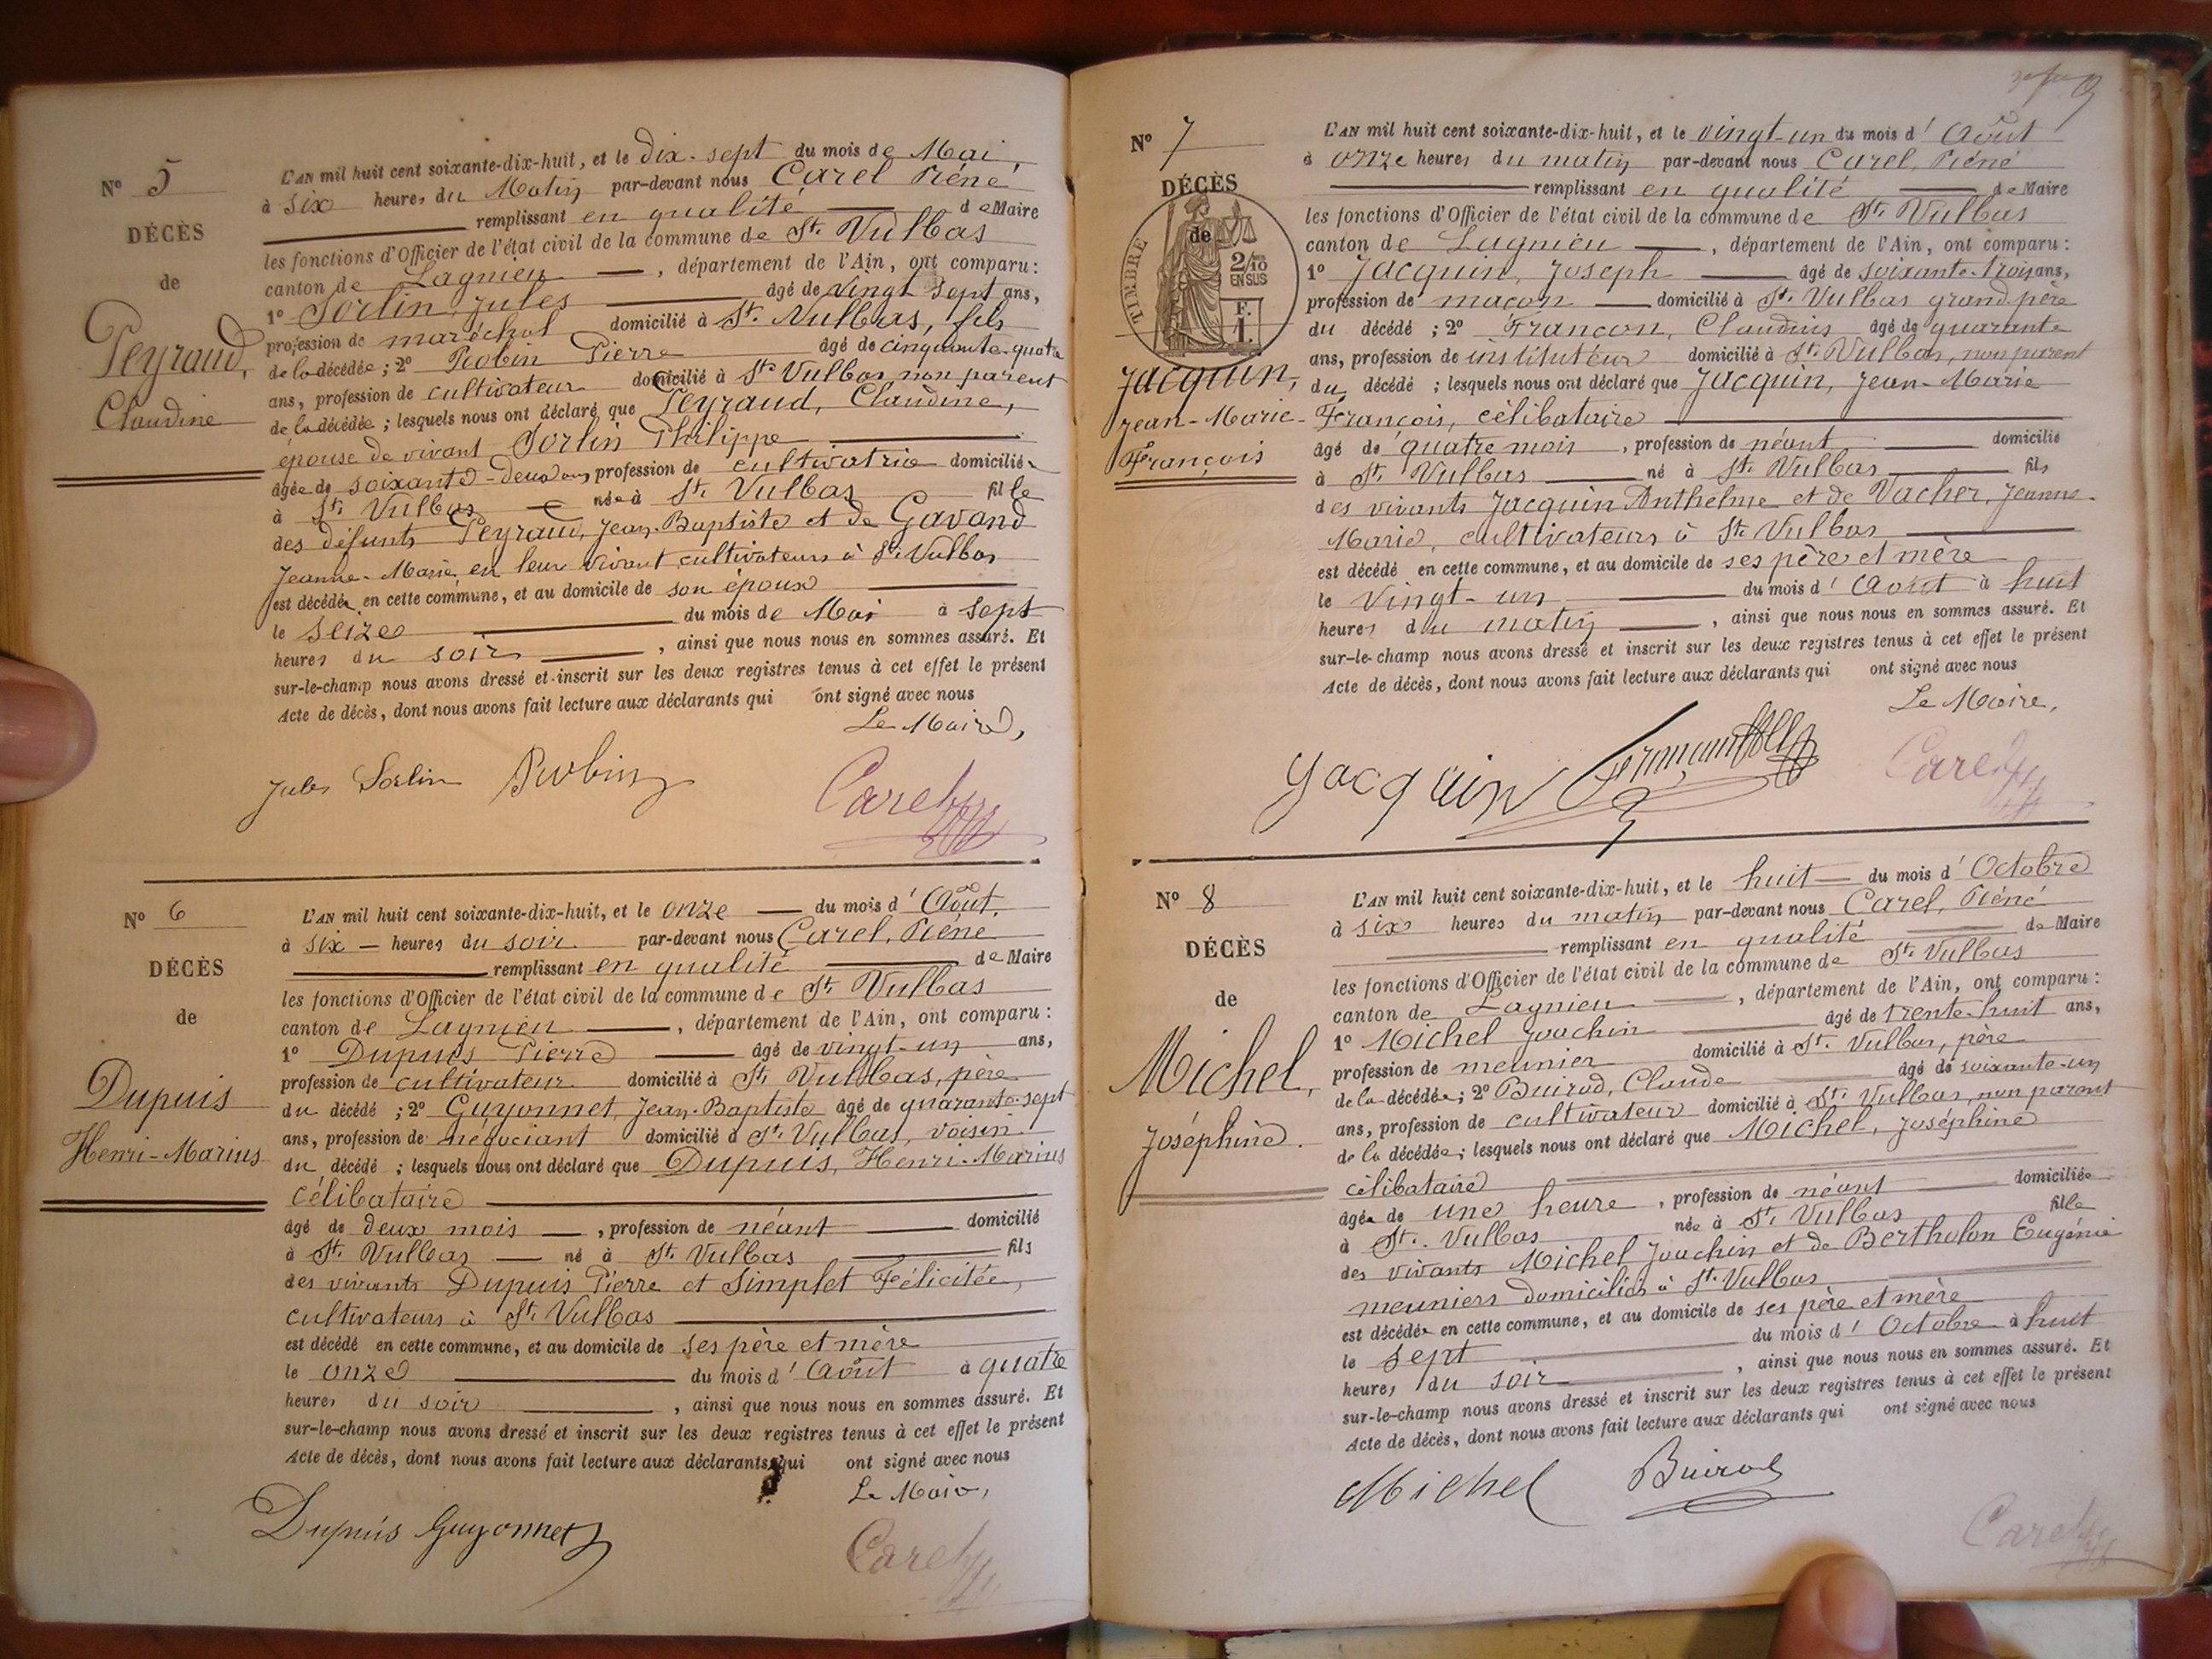 N° 5
DÉCÈS
de
Peyraud,
Claudine
L'AN mil huit cent soixante-dix-huit, et le dix-sept du mois de Mai,
à six heures du Matin par-devant nous Carel Réné
remplissant en qualité de Maire
les fonctions d'Officier de l'état civil de la commune de St. Vulbas
canton de Lagnieu, département de l'Ain, ont comparu :
1° Sorlin, Jules âgé de vingt sept ans,
profession de maréchal domicilié à St. Vulbas, fils
de la décédée ; 2° Robin Pierre âgé de cinquante-quatre
ans, profession de cultivateur domicilié à St. Vulbas non parent
de la décédée ; lesquels nous ont déclaré que Peyraud, Claudine,
épouse de vivant Sorlin Philippe
âgée de soixante-deux ans, profession de cultivatrice domiciliée
à St. Vulbas née à St. Vulbas fille
des défunts Peyraud, Jean-Baptiste et de Gavand
Jeanne-Marie, en leur vivant cultivateurs à St. Vulbas
est décédée en cette commune, et au domicile de son époux
le seize du mois de Mai à sept
heures du soir, ainsi que nous nous en sommes assuré. Et
sur-le-champ nous avons dressé et inscrit sur les deux registres tenus à cet effet le présent
Acte de décès, dont nous avons fait lecture aux déclarants qui ont signé avec nous
Le Maire,
Jules Sorlin Robin Carel
N° 6
DÉCÈS
de
Dupuis
Henri-Marius
L'AN mil huit cent soixante-dix-huit, et le onze du mois d'Août,
à six heures du soir par-devant nous Carel, Réné
remplissant en qualité de Maire
les fonctions d'Officier de l'état civil de la commune de St. Vulbas
canton de Lagnieu, département de l'Ain, ont comparu :
1° Dupuis Pierre âgé de vingt-un ans,
profession de cultivateur domicilié à St. Vulbas, père
du décédé ; 2° Guyonnet, Jean-Baptiste âgé de quarante-sept
ans, profession de négociant domicilié à St. Vulbas, voisin
du décédé ; lesquels nous ont déclaré que Dupuis, Henri-Marius
célibataire
âgé de deux mois, profession de néant domicilié
à St. Vulbas né à St. Vulbas fils
des vivants Dupuis Pierre et Simplet Félicitée,
cultivateurs à St. Vulbas
est décédé en cette commune, et au domicile de ses père et mère
le onze du mois d'Août à quatre
heures du soir, ainsi que nous nous en sommes assuré. Et
sur-le-champ nous avons dressé et inscrit sur les deux registres tenus à cet effet le présent
Acte de décès, dont nous avons fait lecture aux déclarants qui ont signé avec nous
Le Maire,
Dupuis Guyonnet Carel
N° 7
DÉCÈS
de
TIMBRE
2/10
EN SUS
F.
1.
Jacquin,
Jean-Marie-
François
L'AN mil huit cent soixante-dix-huit, et le vingt-un du mois d'Août
à onze heures du matin par-devant nous Carel, Réné
remplissant en qualité de Maire
les fonctions d'Officier de l'état civil de la commune de St. Vulbas
canton de Lagnieu, département de l'Ain, ont comparu :
1° Jacquin, Joseph âgé de soixante-trois ans,
profession de maçon domicilié à St. Vulbas grand-père
du décédé ; 2° Françon, Claudius âgé de quarante
ans, profession de instituteur domicilié à St. Vulbas, non parent
du décédé ; lesquels nous ont déclaré que Jacquin, Jean-Marie
François, célibataire
âgé de quatre mois, profession de néant domicilié
à St. Vulbas né à St. Vulbas fils
des vivants Jacquin Anthelme et de Vacher, Jeanne-
Marie, cultivateurs à St. Vulbas
est décédé en cette commune, et au domicile de ses père et mère
le vingt-un du mois d'Août à huit
heures du matin, ainsi que nous nous en sommes assuré. Et
sur-le-champ nous avons dressé et inscrit sur les deux registres tenus à cet effet le présent
Acte de décès, dont nous avons fait lecture aux déclarants qui ont signé avec nous
Le Maire,
Jacquin Carel
N° 8
DÉCÈS
de
Michel,
Joséphine.
L'AN mil huit cent soixante-dix-huit, et le huit du mois d'Octobre
à six heures du matin par-devant nous Carel, Réné
remplissant en qualité de Maire
les fonctions d'Officier de l'état civil de la commune de St. Vulbas
canton de Lagnieu, département de l'Ain, ont comparu :
1° Michel Joachin âgé de trente-huit ans,
profession de meunier domicilié à St. Vulbas, père
de la décédée ; 2° Buirod, Claude âgé de soixante-un
ans, profession de cultivateur domicilié à St. Vulbas, non parent
de la décédée ; lesquels nous ont déclaré que Michel, Joséphine
célibataire
âgée de une heure, profession de néant domiciliée
à St. Vulbas née à St. Vulbas fille
des vivants Michel Joachin et de Bertholon Eugénie
meuniers domiciliés à St. Vulbas
est décédée en cette commune, et au domicile de ses père et mère
le sept du mois d'Octobre à huit
heures du soir, ainsi que nous nous en sommes assuré. Et
sur-le-champ nous avons dressé et inscrit sur les deux registres tenus à cet effet le présent
Acte de décès, dont nous avons fait lecture aux déclarants qui ont signé avec nous
Michel Buirod
Carel